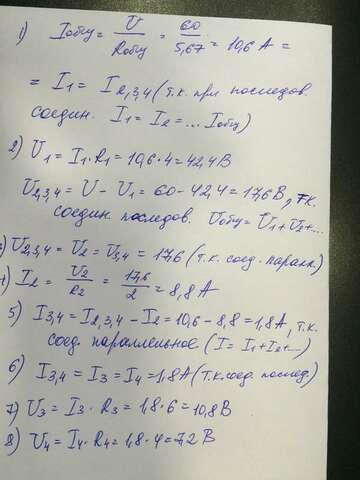 1) Iобщ = U/Rобщ = 60/5,67 = 10,6 А =
= I1 = I2,3,4 (т.к. при последов.
соедин. I1 = I2 = ... Iобщ)
2) U1 = I1 · R1 = 10,6 · 4 = 42,4 В
U2,3,4 = U - U1 = 60 - 42,4 = 17,6 В, т.к.
соедин. последов. Uобщ = U1 + U2 + ...
3) U2,3,4 = U2 = U3,4 = 17,6 (т.к. соед. паралл.)
4) I2 = U2/R2 = 17,6/2 = 8,8 А
5) I3,4 = I2,3,4 - I2 = 10,6 - 8,8 = 1,8 А, т.к.
соед. параллельное (I = I1 + I2 + ...)
6) I3,4 = I3 = I4 = 1,8 А (т.к. соед. послед)
7) U3 = I3 · R3 = 1,8 · 6 = 10,8 В
8) U4 = I4 · R4 = 1,8 · 4 = 7,2 В